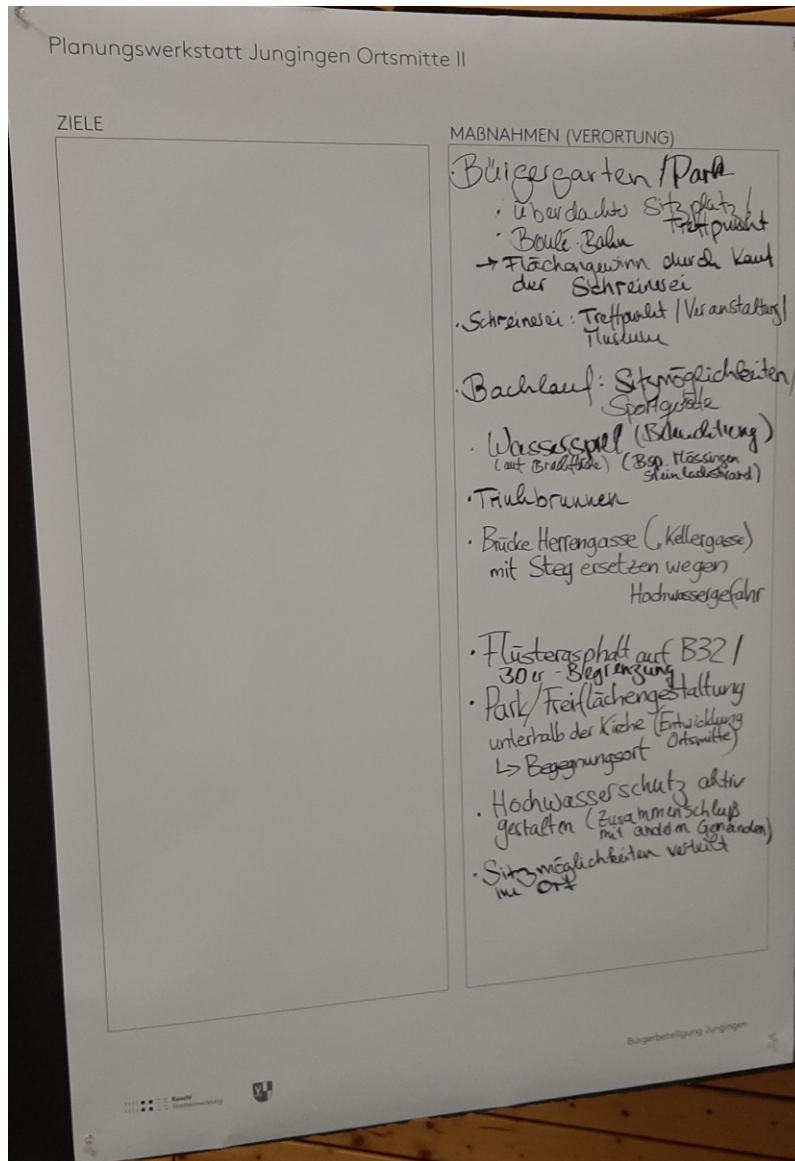 Planungswerkstatt Jungingen Ortsmitte II
ZIELE
MAßNAHMEN (VERORTUNG)
· Bürgergarten / Park
· Überdachte Sitzplatz /
Treffpunkt
· Boule-Bahn
→ Flächengewinn durch Kauf
der Schreinerei
· Schreinerei: Treffpunkt / Veranstaltung /
Museum
· Bachlauf: Sitzmöglichkeiten /
Sportgeräte
· Wasserspiel (Beleuchtung)
(auf Brachfläche) (Bsp. Mössingen
Steinlachstrand)
· Trinkbrunnen
· Brücke Herrengasse (Kellergasse)
mit Steg ersetzen wegen
Hochwassergefahr
· Flüsterasphalt auf B32 /
30er-Begrenzung
· Park/Freiflächengestaltung
unterhalb der Kirche (Entwicklung
Ortsmitte)
↳ Begegnungsort
· Hochwasserschutz aktiv
gestalten (Zusammenschluß
mit andern Gemeinden)
· Sitzmöglichkeiten verteilt
im Ort
Bürgerbeteiligung Jungingen
Reschl
Stadtentwicklung